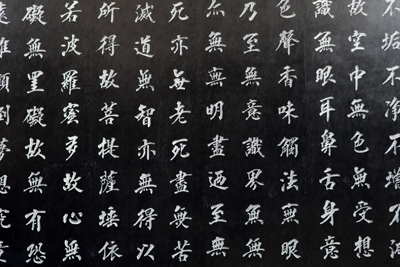 不垢不淨不增不減
故空中無色無受想
識無眼耳鼻舌身意
色聲香味觸法無眼
乃至無意識界無無
亦無無明盡迺至無
死亦無老死盡無苦
滅道無智亦無得以
所得故菩提薩埵依
若波羅蜜多故心無
礙無罣礙故無有恐
遠離顛倒夢想究竟